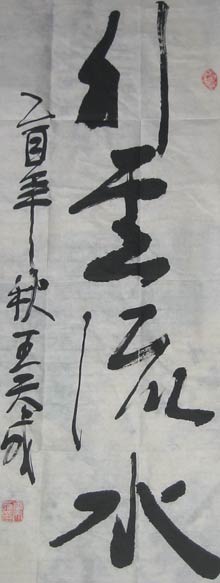 行云流水
乙酉年秋王天成